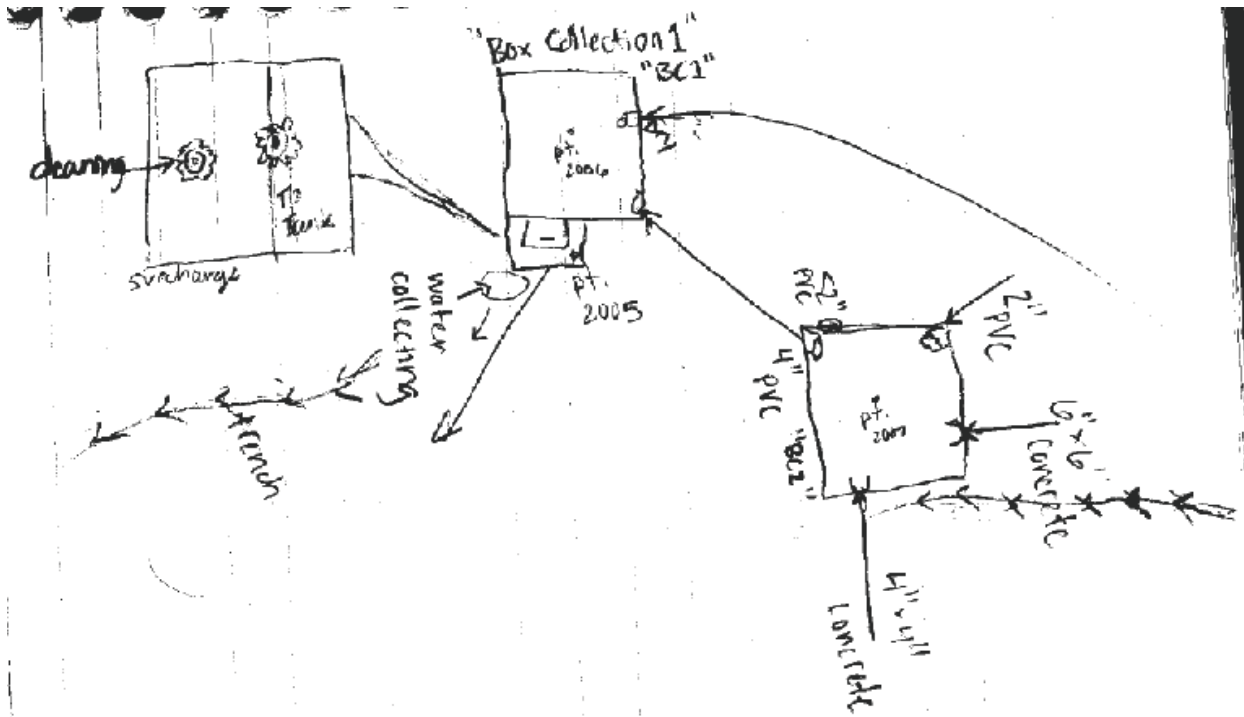 "Box Collection 1"
"BC1"
pt.
2006
2"
cleaning
To
Tank
surcharge
pt.
2005
water
collecting
trench
2"
PVC
2"
PVC
4" PVC
"BC2"
pt.
2007
6" x 6"
Concrete
4" x 4"
concrete